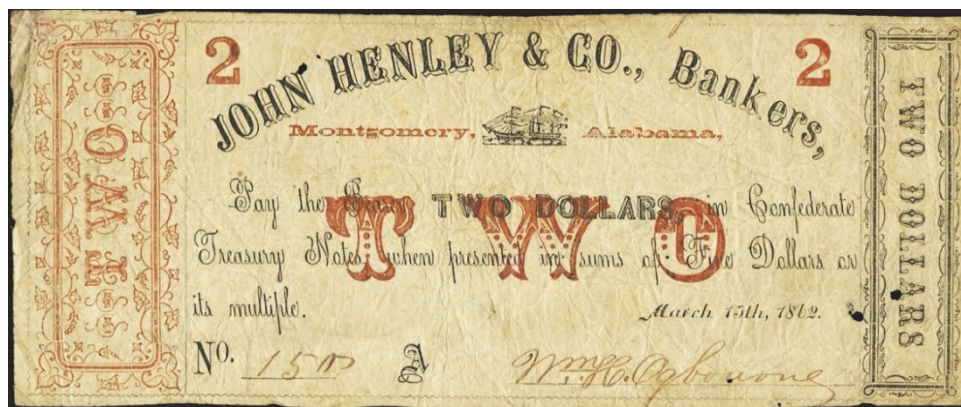 2 2
JOHN HENLEY & CO., Bankers,
Montgomery, Alabama,
Pay the Bearer TWO DOLLARS, in Confederate
Treasury Notes, when presented in sums of Five Dollars or
its multiple. March 15th, 1862.
No. A
TWO
TWO
TWO DOLLARS